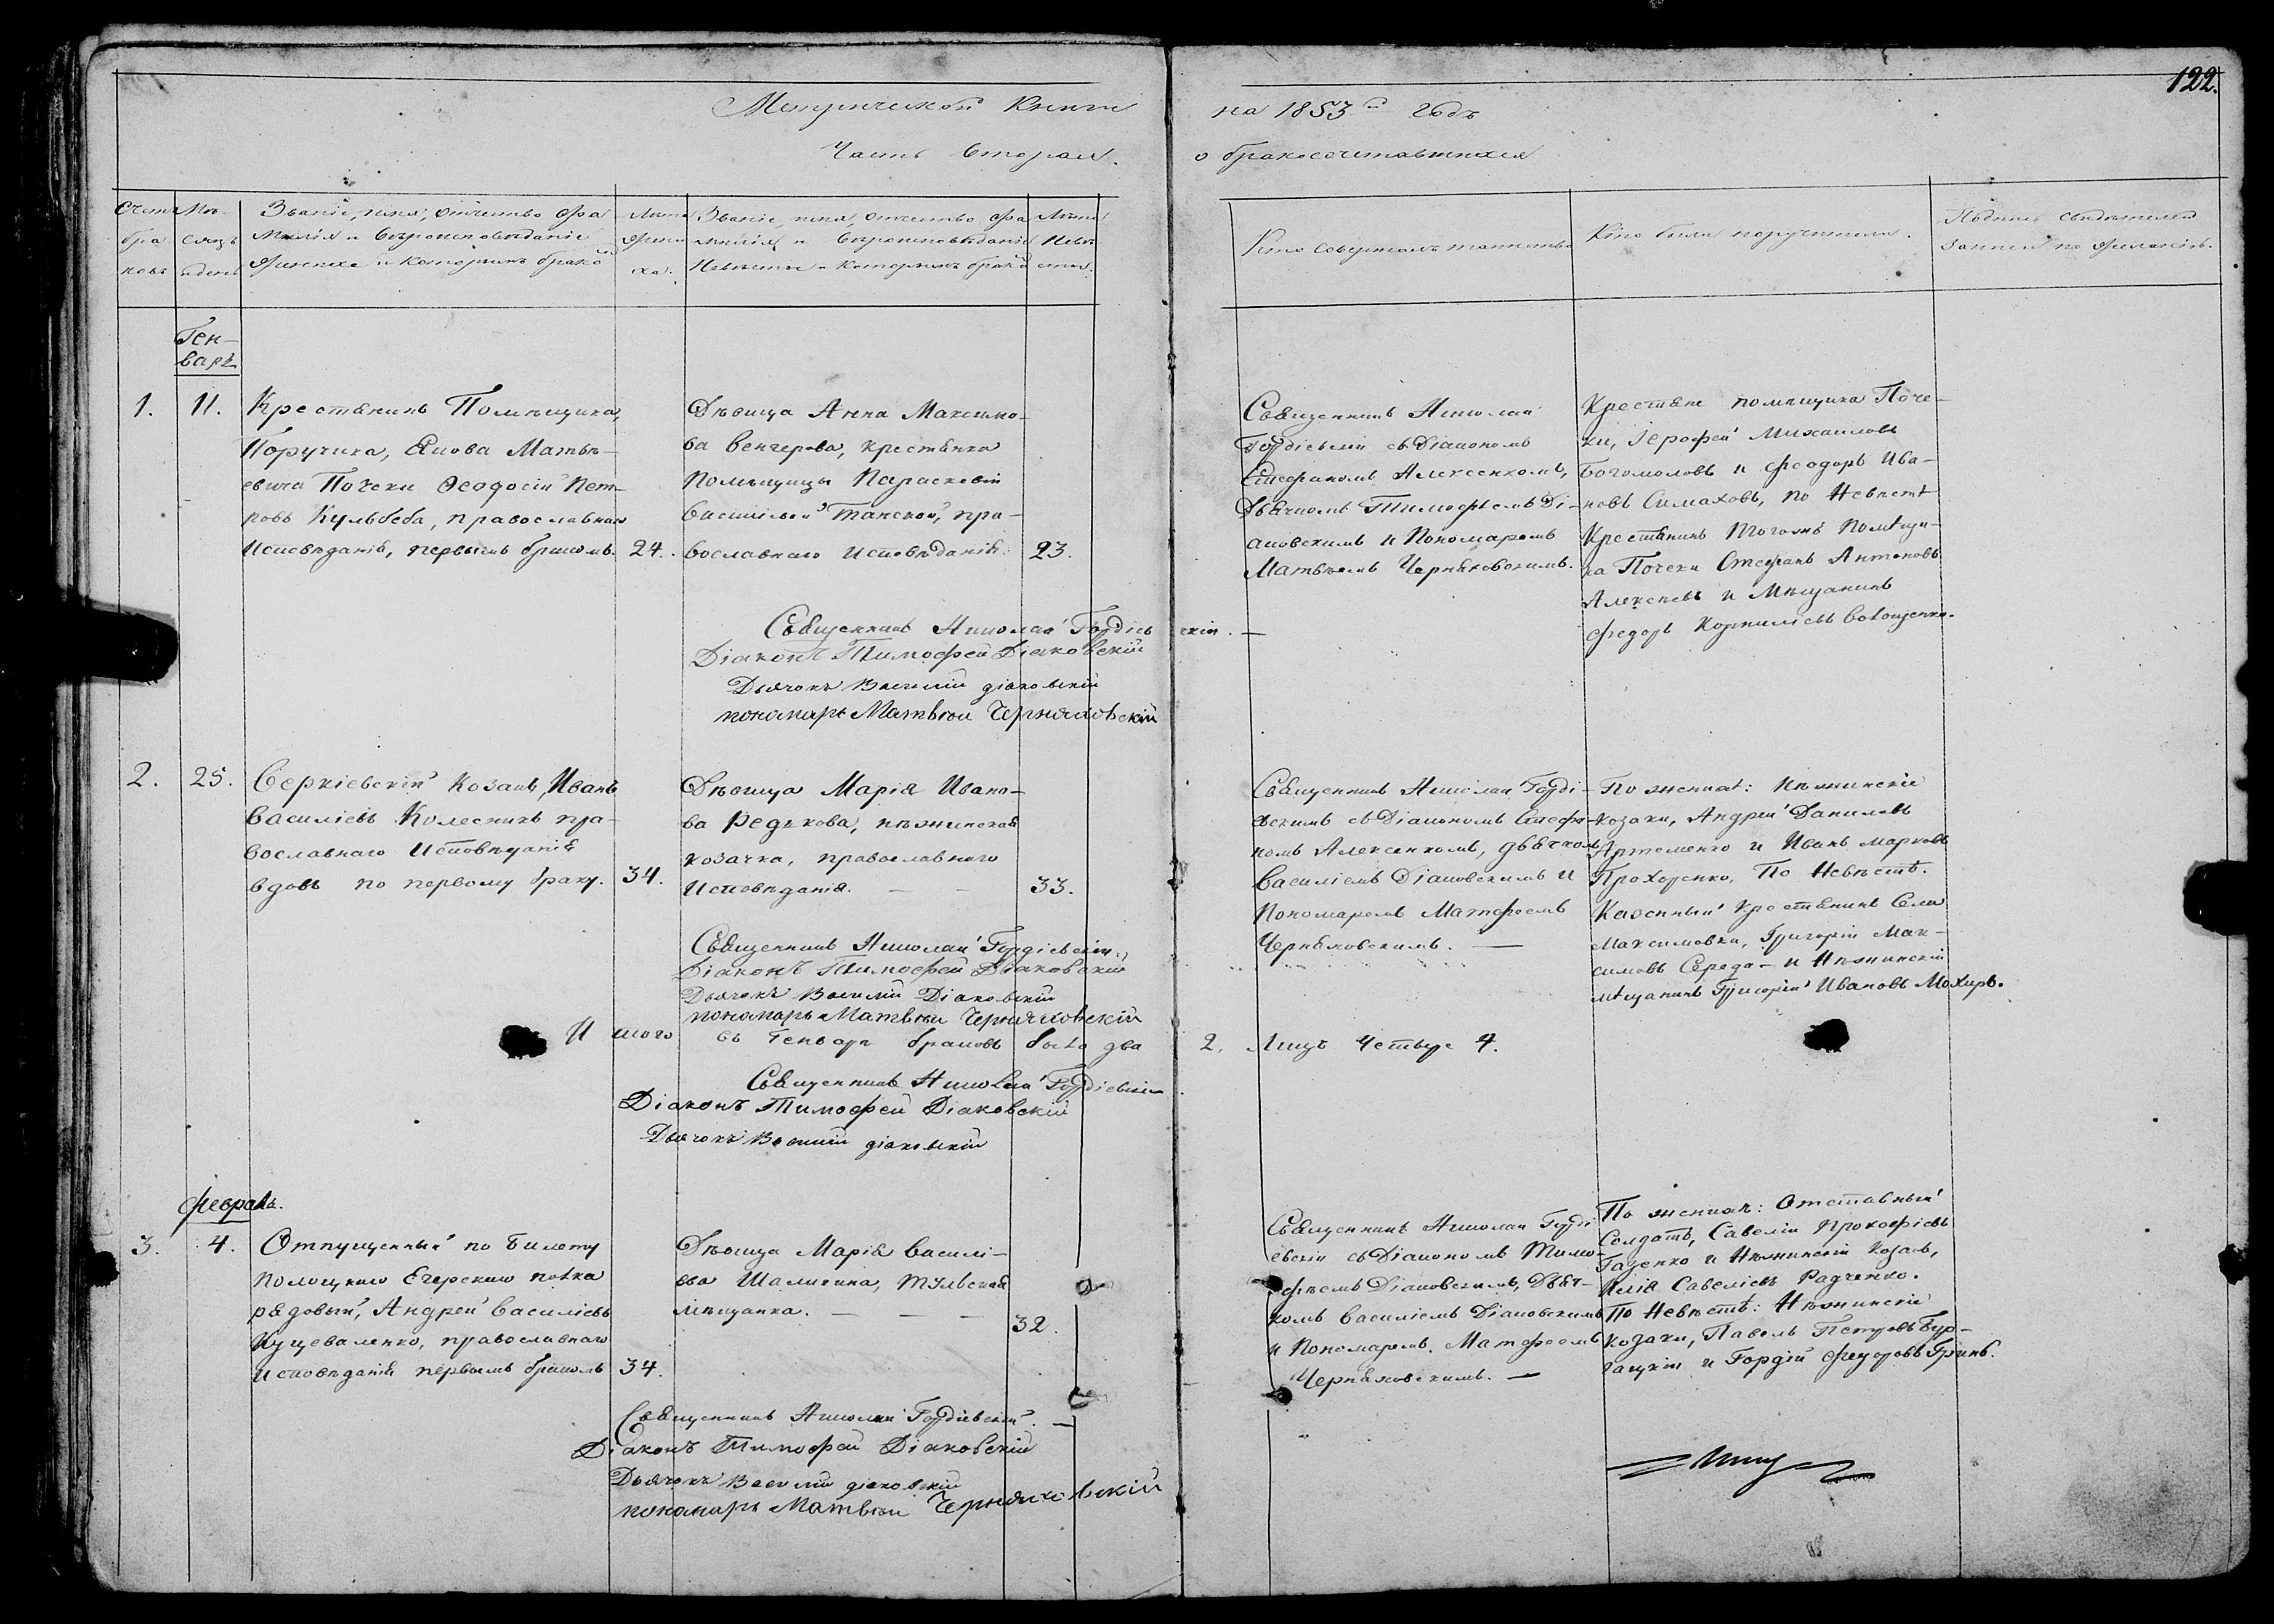 122.
Метрической Книги на 1853й годъ
Часть вторая. о бракосочетавшихся
Счетъ бра ковъ
Мѣ- сяцъ и день
Званіе, имя, отчество, фа
милія и вѣроисповѣданіе
жениха и которымъ бракомъ
Лѣта жени ха.
Званіе, имя, отчество, фа
милія и вѣроисповѣданіе
Невѣсты и которымъ бракомъ
Лѣта Невѣ сты.
Кто совершалъ таинство
Кто были поручители.
Подпись свидѣтелей
записи по желанію.
Ген-
варь
1.
11.
Крестянинъ Помѣщика,
Поручика, Якова Матвѣ-
евича Почеки Ѳеодосій Пет-
ровъ Кульбеба, православнаго
Исповѣданія, первымъ бракомъ.
24.
Дѣвица Анна Максимо-
ва Венгерова, крестянка
Помѣщицы Параскевіи
Василіевой Танской, пра-
вославнаго исповѣданія.
23.
Священникъ Николай
Гордіевскій съ Діакономъ
Стефаномъ Алексенкомъ,
Дьячкомъ Тимофѣемъ Ді-
аковскимъ и Пономаремъ
Матвѣемъ Черняховскимъ.
Крестяне помѣщика Поче-
ки, Іерофей Михаиловъ
Богомоловъ и Феодоръ Ива-
новъ Симаховъ, по Невѣстѣ
Крестянинъ тогожъ Помѣщи-
ка Почеки Стефанъ Антоновъ
Алексѣевъ и Мѣщанинъ
Федоръ Корниліевъ Волощенко.
Священникъ Николай Гордіевскій. —
Діаконъ Тимофей Діаковскій
Дьячокъ Василій діаковскій
пономарь Матвѣй Черняховскій
2.
25.
Серкіевскій Козакъ, Иванъ
Василіевъ Колесникъ пра-
вославнаго Исповѣданія
вдовъ по первому браку.
34.
Дѣвица Марія Ивано-
ва Редькова, нѣжинская
козачка, православнаго
Исповѣданія. — —
33.
Священникъ Николай Горді-
евскимъ съ Діакономъ Стефа-
номъ Алексенкомъ, дьячкомъ
Василіемъ Діаковскимъ и
Пономаремъ Матфеемъ
Черняховскимъ. —
По женихѣ: Нѣжинскіе
козаки, Андрей Даниловъ
Артеменко и Иванъ Марковъ
Прохоренко, По Невѣстѣ.
Казенный крестянинъ Села
Максимовки, Григорій Мак-
симовъ Середа — и Нѣжинскій
мѣщанинъ Григорій Ивановъ Мохиръ.
Священникъ Николай Гордіевскій.
Діаконъ Тимофей Діаковскій
Дьячокъ Василій Діаковскій
пономарь Матвѣй Черняховскій
И того въ Генварѣ браковъ было два 2. Лицъ четыре 4.
Священникъ Николай Гордіевскій
Діаконъ Тимофей Діаковскій
Дьячокъ Василій діаковскій
Февраль.
3.
4.
Отпущенный по билету
Полоцкаго Егерскаго полка
рядовый, Андрей Василіевъ
Куцеваленко, православнаго
исповѣданія первымъ бракомъ
34.
Дѣвица Марія Василі-
ева Шалигина, Тульская
мѣщанка. — —
32.
Священникъ Николай Горді-
евскій съ Діакономъ Тимо-
фѣемъ Діаковскимъ, Дьяч-
комъ Василіемъ Діаковскимъ
и Пономаремъ, Матфеемъ
Черняховскимъ. —
По женихѣ: Отставный
Солдатъ, Савелій Прокофіевъ
Гаценко и Нѣжинскій Козакъ,
Илія Савеліевъ Радченко.
По Невѣстѣ: Нѣжинскіе
козаки, Павелъ Петровъ Бур-
гацкій и Гордій Федоровъ Гринь.
Священникъ Николай Гордіевскій. —
Діаконъ Тимофей Діаковскій
Дьячокъ Василій діаковскій
пономарь Матвѣй Черняховскій